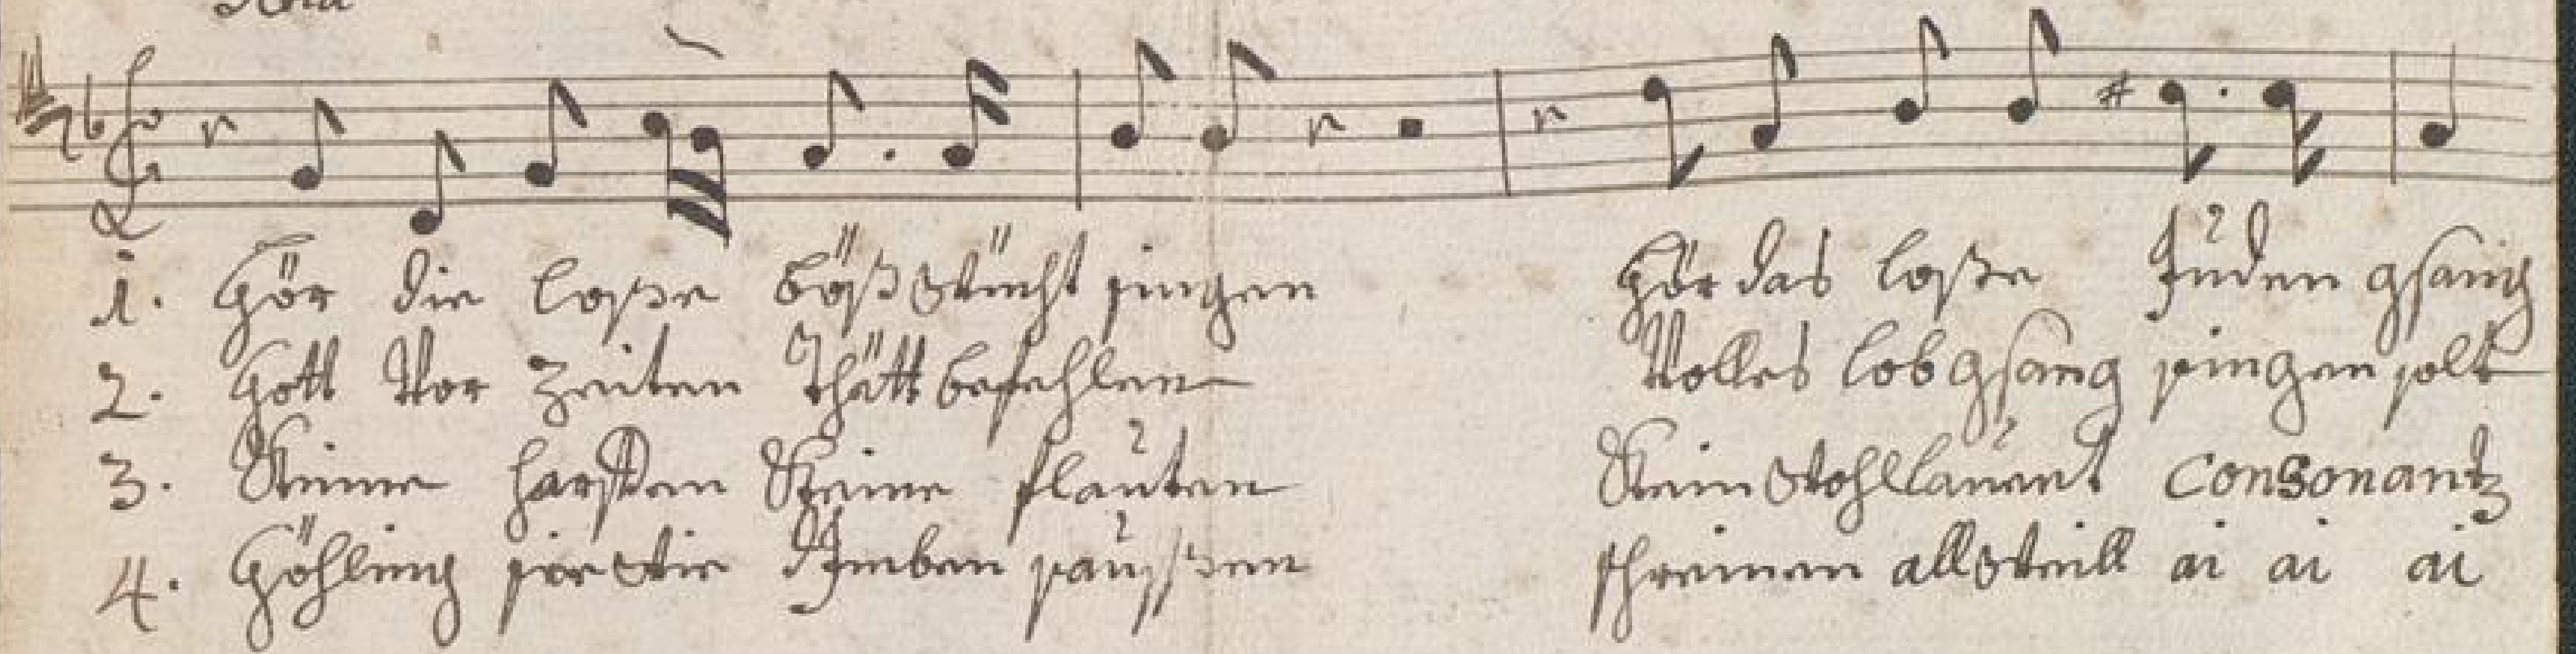 Aria
1. Hör die loße bößwücht singen Hör das loße Juden gsang
2. Gott Vor Zeiten Thätt befehlen Volles lobgsang singen solt
3. Keine harpfen Keine flauten Kein Wohllautent Consonantz
4. Höhling sie wie Imben saußen schreinen allweill ai ai ai